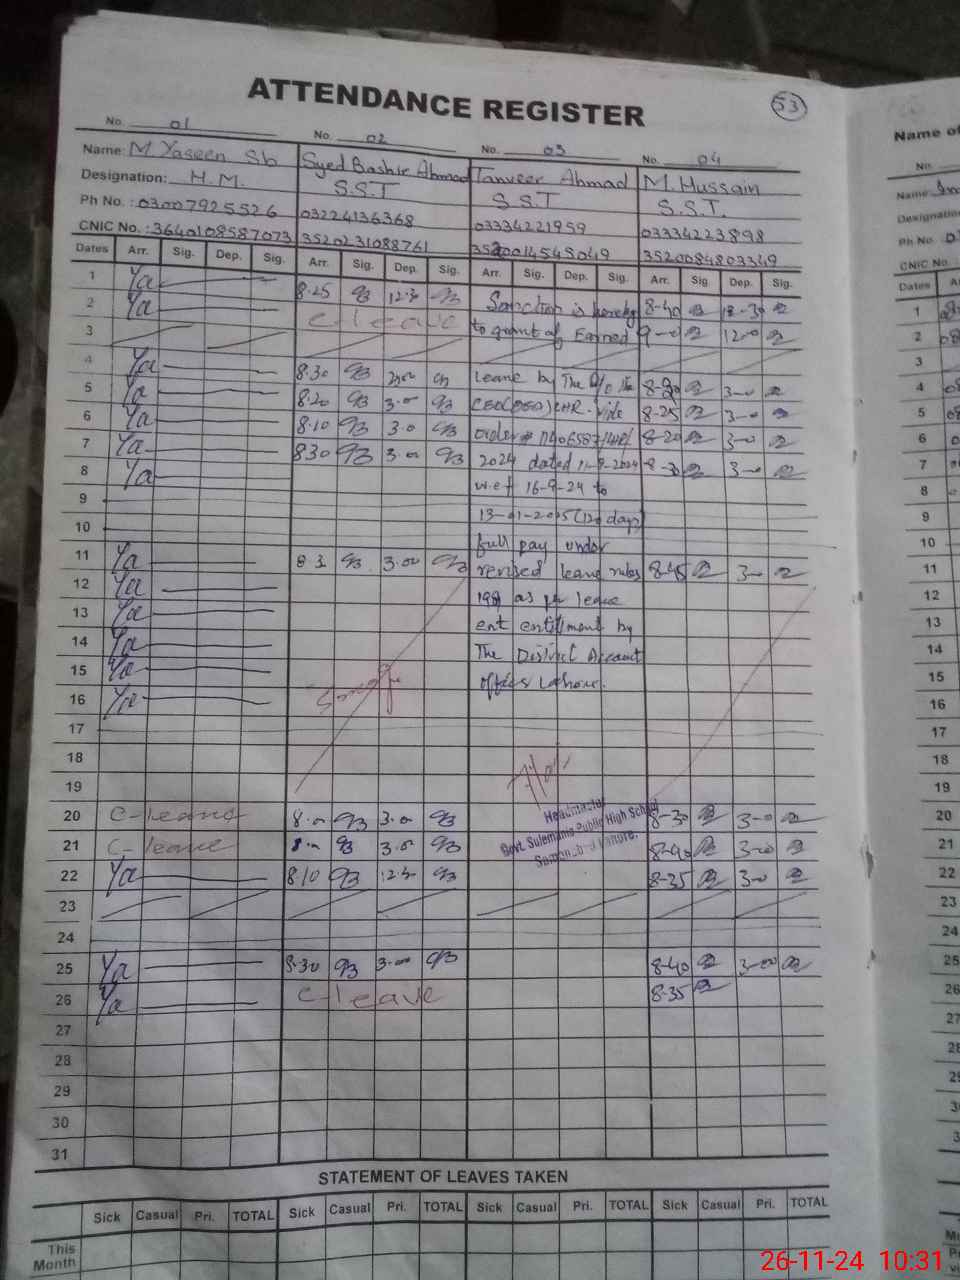 53
ATTENDANCE REGISTER
No. 01 No. 02 No. 03 No. 04
Name: M. Yaseen Sb Syed Bashir Ahmad Tanveer Ahmad M. Hussain
Designation: H.M. S.S.T S.S.T S.S.T.
Ph No. : 03007925526 03224136368 03334221959 03334223898
CNIC No. : 3640108587073 3520231088761 3520014545049 3520084803349
Dates Arr. Sig. Dep. Sig. Arr. Sig. Dep. Sig. Arr. Sig. Dep. Sig. Arr. Sig. Dep. Sig.
1 Ya 8.25 12.30 Sanction is hereby 8-40 12-30
2 Ya C-leave to grant of Earned 9-0 12-0
3
4 Ya 8.30 leave by The 8-20 3-0
5 Ya 8.20 3.0 8-25 3-0
6 Ya 8.10 3.0 order 8-20 3-0
7 Ya 830 3.0 2024 dated 11-9-2024 8-30 3-0
8 Ya w.e.f 16-9-24 to
9 13-01-2025 (120 days)
10 full pay under
11 Ya 8 3 3.00 revised leave rules 8-45 3-0
12 Ya 1981 as per leave
13 Ya ent entitlment by
14 Ya The District Account
15 Ya offices Lahore.
16 Ya Smog
17
18
19
Headmaster
Govt. Sulemania Public High School
Samanabad Lahore.
20 C-leave 8.0 3.0 8-30 3-0
21 C-leave 8.0 3.0 8-40 3-0
22 Ya 810 12.30 8-35 3-0
23
24
25 Ya 8.30 3.00 8-40 3-00
26 Ya C-leave 8-35
27
28
29
30
31
STATEMENT OF LEAVES TAKEN
Sick Casual Pri. TOTAL Sick Casual Pri. TOTAL Sick Casual Pri. TOTAL Sick Casual Pri. TOTAL
This
Month
Name of
No.
Name:
Designation
Ph No.
CNIC No.
Dates
1
2
3
4
5
6
7
8
9
10
11
12
13
14
15
16
17
18
19
20
21
22
23
24
25
26
27
28
29
30
26-11-24 10:31